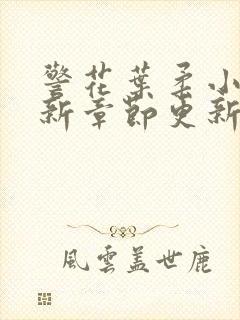 警花葉柔小
新章節更新
風雲蓋世鹿